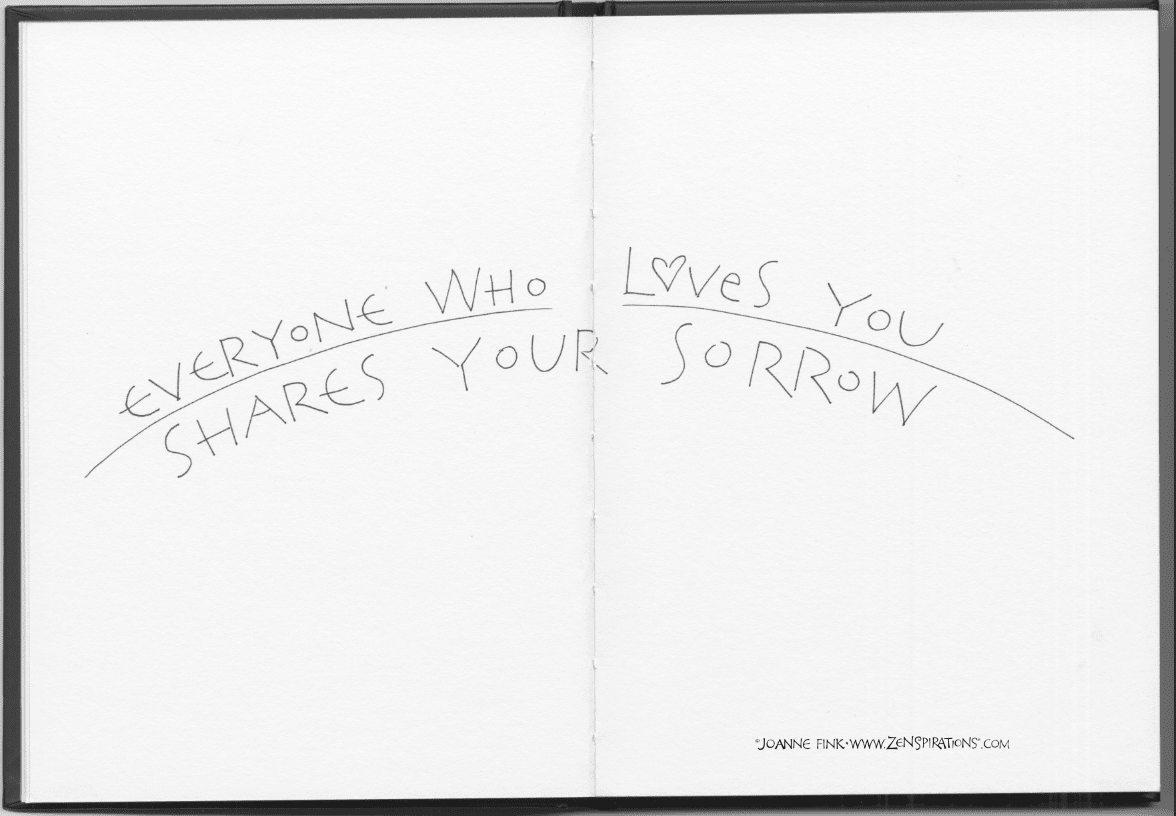 EVERYONE WHO LOVES YOU
SHARES YOUR SORROW
©JOANNE FINK•WWW.ZENSPIRATIONS®.COM